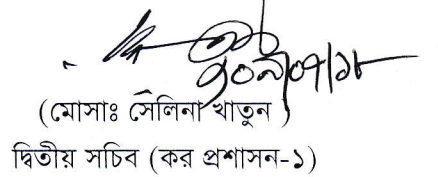 (মোসাঃ সেলিনা খাতুন )
দ্বিতীয় সচিব (কর প্রশাসন-১)